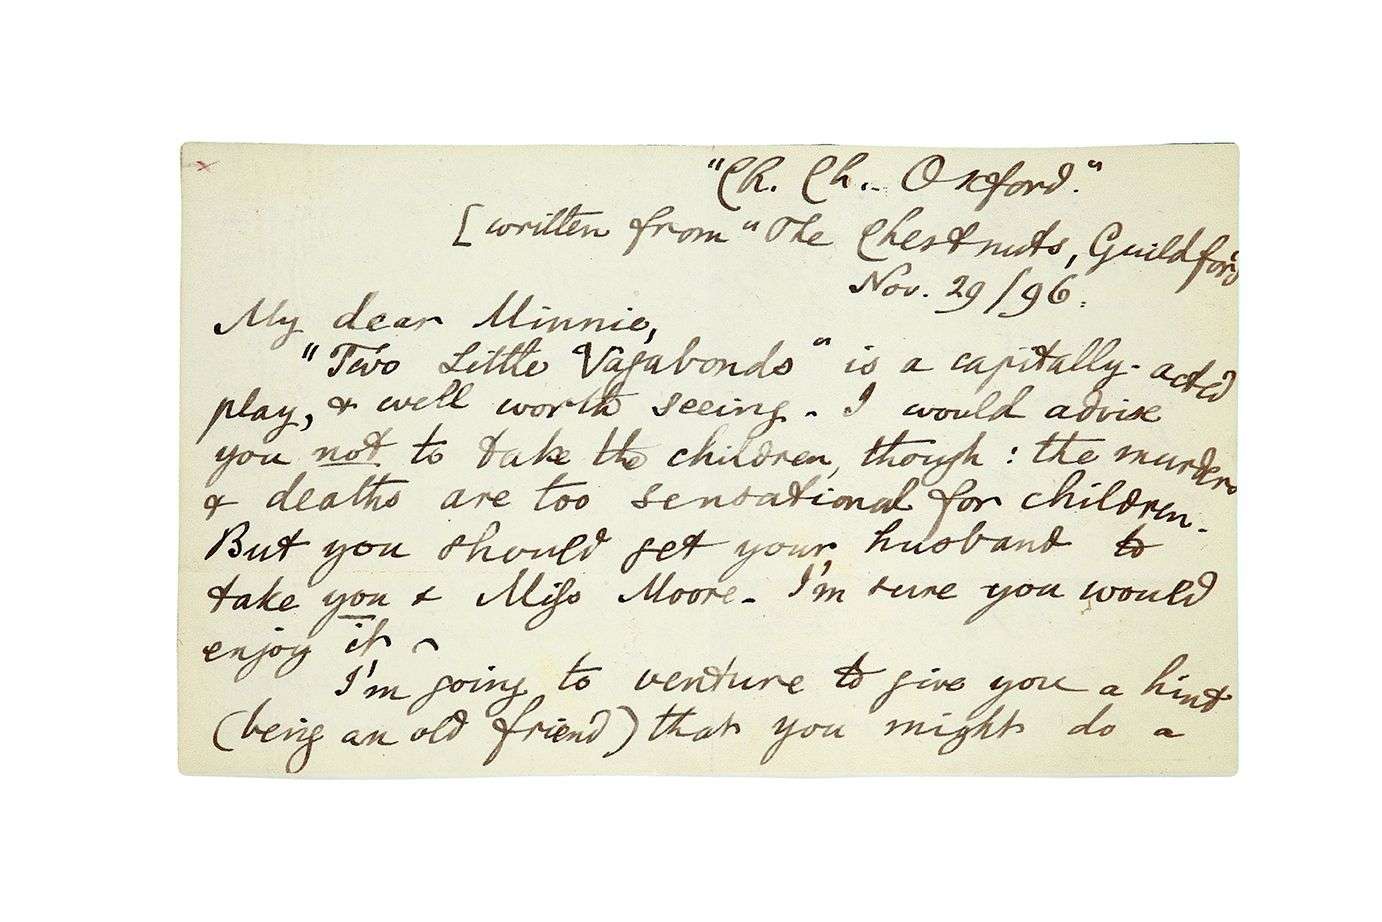 "Ch. Ch. Oxford."
[written from "The Chestnuts, Guildford
Nov. 29/96.
My dear Minnie,
"Two Little Vagabonds" is a capitally-acted
play, & well worth seeing. I would advise
you not to take the children, though: the murders
& deaths are too sensational for children.
But you should get your husband to
take you & Miss Moore. I'm sure you would
enjoy it.
I'm going to venture to give you a hint
(being an old friend) that you might do a